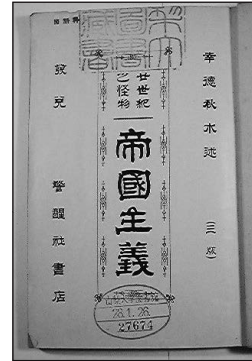 幸德秋水述
(三版)
廿世紀
之怪物
帝國主義
發兌 警醒社書店
28.1.26
27674